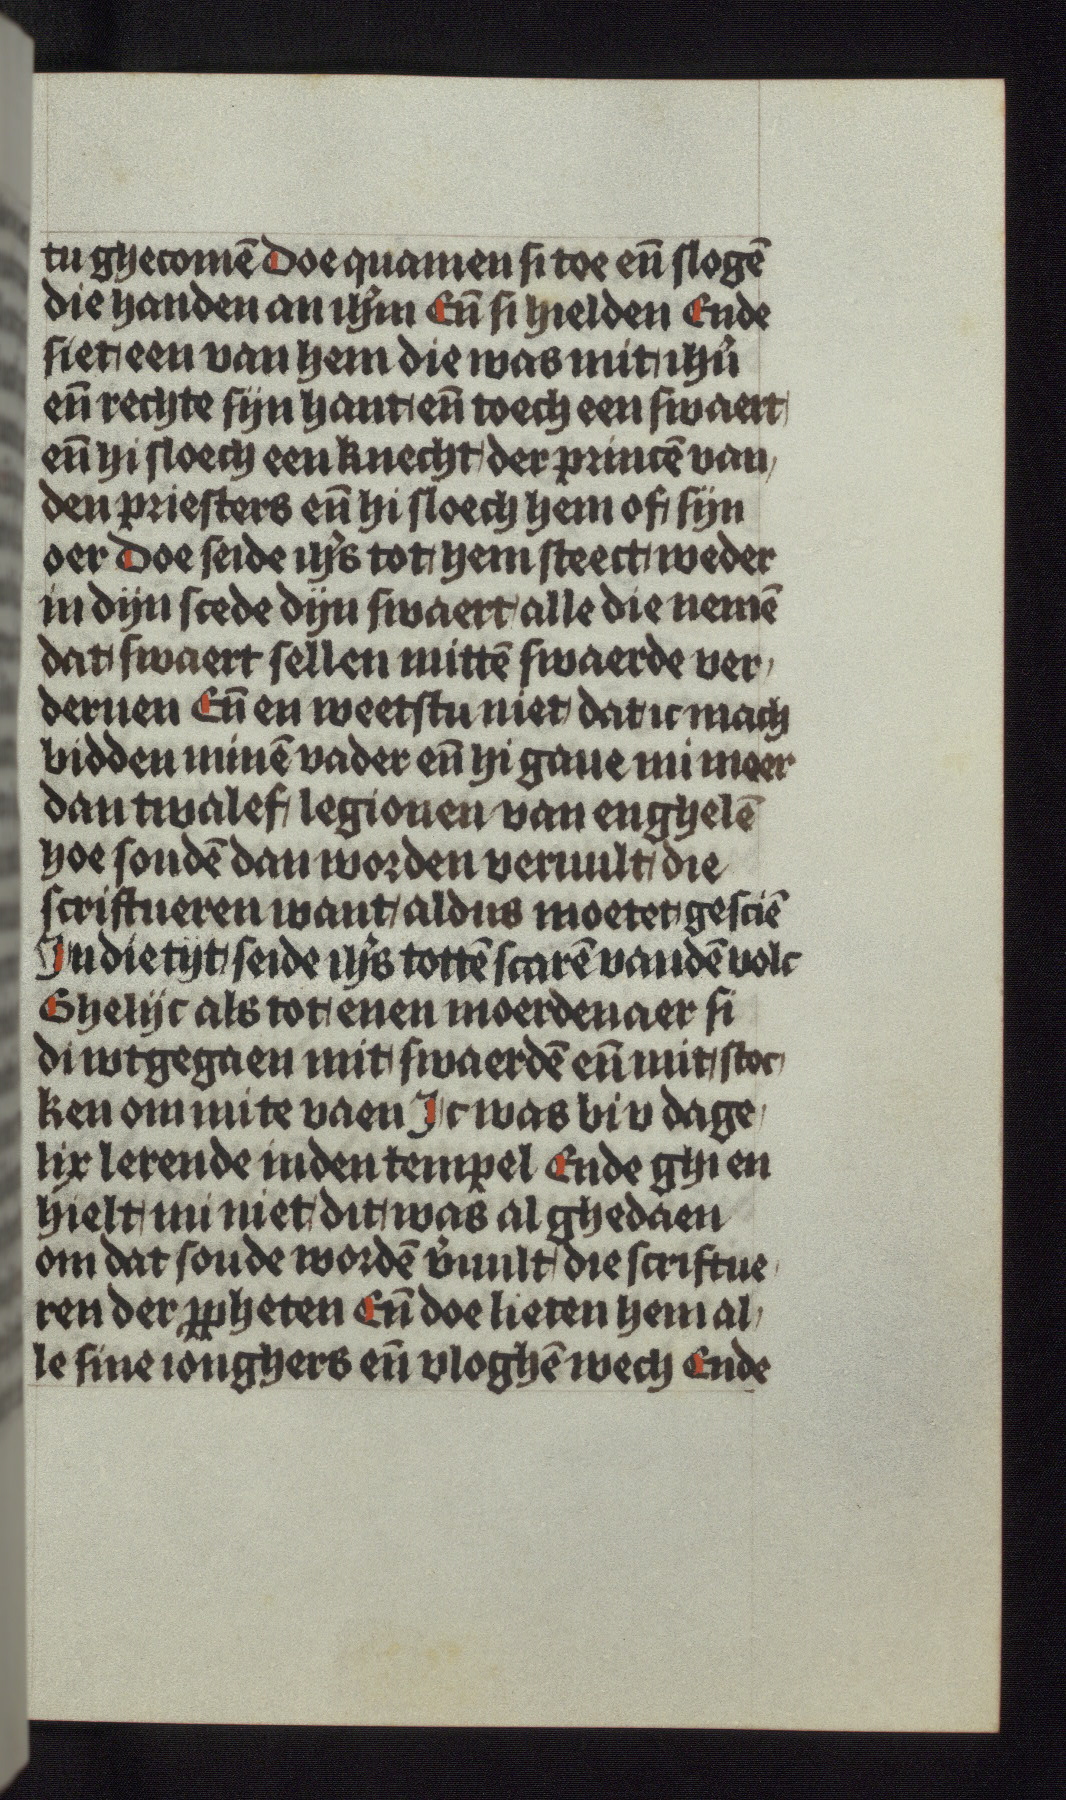 tu ghecomē Doe quamen si toe en̄ slogē
die handen an ihm̄ En̄ si hielden Ende
siet een van hem die was mit ihū
en̄ rechte sijn hant en̄ toech een swaert
en̄ hi sloech een knecht der princē van
den priesters en̄ hi sloech hem of sijn
oer Doe seide ihs̄ tot hem steect weder
in dijn scede dijn swaert alle die nemē
dat swaert sellen mittē swaerde ver
deruen En̄ en weetstu niet dat ic mach
bidden minē vader en̄ hi gaue mi meer
dan twalef legionen van enghelē
hoe soudē dan worden veruult die
scriftueren want aldus moetet gesciē
In die tijt seide ihs̄ tottē scarē vandē volc
Ghelijc als tot enen moerdenaer si
di wtgegaen mit swaerdē en̄ mit stoc
ken om mi te vaen Ic was bi v dage
lix lerende inden tempel Ende ghi en
hielt mi niet dit was al ghedaen
om dat soude wordē v̄uult die scriftue
ren der ꝓpheten En̄ doe lieten hem al
le sine ionghers en̄ vloghē wech Ende